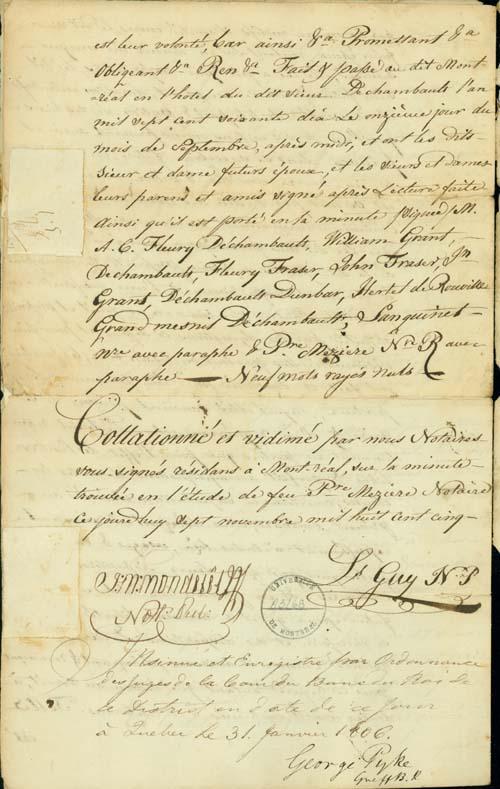 est leur volonté, Car ainsi &a Promettant &a
Obligeant &a Ren &a Fait & passé au dit Mont
réal en l'hotel du dit sieur Déchambault l'an
mil sept cent soixante dix Le onzième jour du
mois de Septembre, après midi, et ont les dits
sieur et dame futurs époux, et les sieurs et dames
leurs parens et amis signé après Lecture faite
Ainsi qu'il est porté en la minute signée M.
A. C. Fleury Déchambault, William Grant,
Dechambault, Fleury Fraser, John Fraser, Jn
Grant, Déchambault Dunbar, Hertel de Rouville
Grandmesnil Déchambault, & Sanguinet
Nre avec paraphe & Pre Meziere Nre R avec
paraphe — Neuf mots rayés nuls
Collationné et vidimé par nous Notaires
sous signés résidans à Mont réal, sur la minute
trouvée en l'étude de feu Pre Meziere Notaire
ce jourd'huy sept novembre mil huit cent cinq
Ls Guy N.P
Not. Pub.
UNIVERSITÉ
DE MONTRÉAL
Insinué et Enregistré par Ordonnance
des Juges de la Cour du Banc du Roi de
ce District en date de ce Jour
à Quebec le 31. Janvier 1806.
George Pyke
Greff B. R